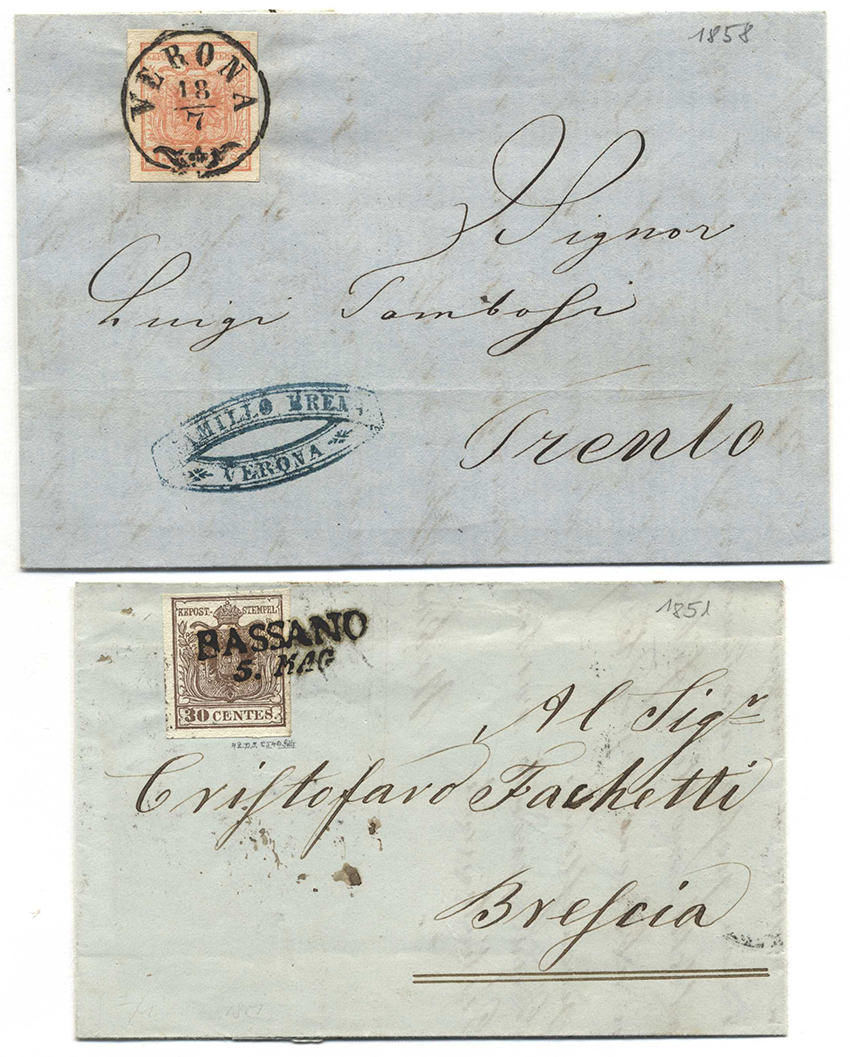 1858
VERONA
18
7
Signor
Luigi Tambosi
CAMILLO BREA
VERONA
Trento
1851
KKPOST-STEMPEL
BASSANO
5. MAG
30 CENTES.
Al Sigr
Cristofaro Fachetti
Brescia